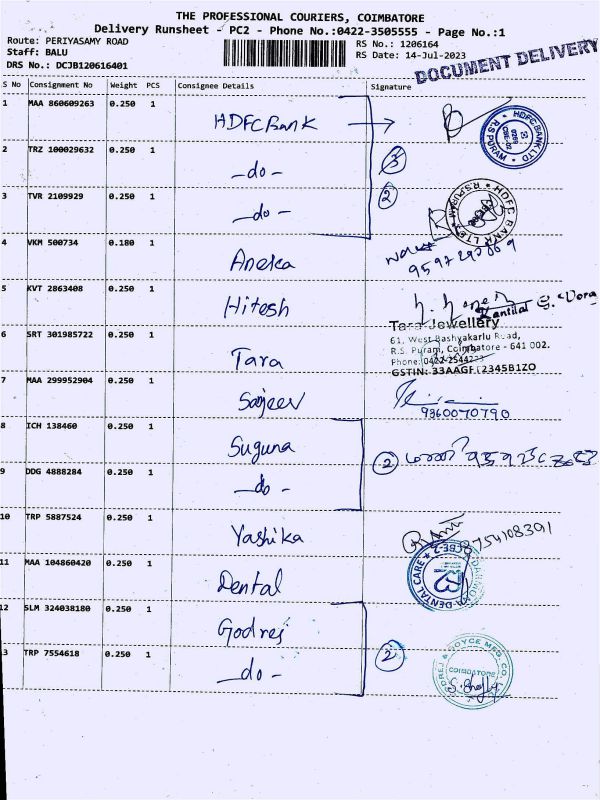 THE PROFESSIONAL COURIERS, COIMBATORE
Delivery Runsheet - PC2 - Phone No.:0422-3505555 - Page No.:1
Route: PERIYASAMY ROAD
Staff: BALU
DRS No.: DCJB120616401
RS No.: 1206164
RS Date: 14-Jul-2023
DOCUMENT DELIVERY
S No Consignment No Weight PCS Consignee Details Signature
1 MAA 860609263 0.250 1 HDFC Bank →
HDFC BANK LTD R.S PURAM
2 TRZ 100029632 0.250 1 -do-
3
3 TVR 2109929 0.250 1 -do- 2
HDFC BANK LTD R.S.PURAM
4 VKM 500734 0.180 1 Aneka
5 KVT 2863408 0.250 1 Hitesh
Kantilal G. Vora
6 SRT 301985722 0.250 1 Tara
Tara Jewellery
61, West Bashyakarlu Road,
R.S. Puram, Coimbatore - 641 002.
Phone: 0422-2544223
GSTIN: 33AAGF 2345B1ZO
7 MAA 299952904 0.250 1 Sanjeev
9860070790
8 ICH 138460 0.250 1 Suguna
2
9 DDG 4888284 0.250 1 -do-
10 TRP 5887524 0.250 1 Yashika
11 MAA 104860420 0.250 1 Dental
DENTAL CARE
12 SLM 324038180 0.250 1 Godrej
13 TRP 7554618 0.250 1 -do- 2
GODREJ & BOYCE MFG. CO.
COIMBATORE